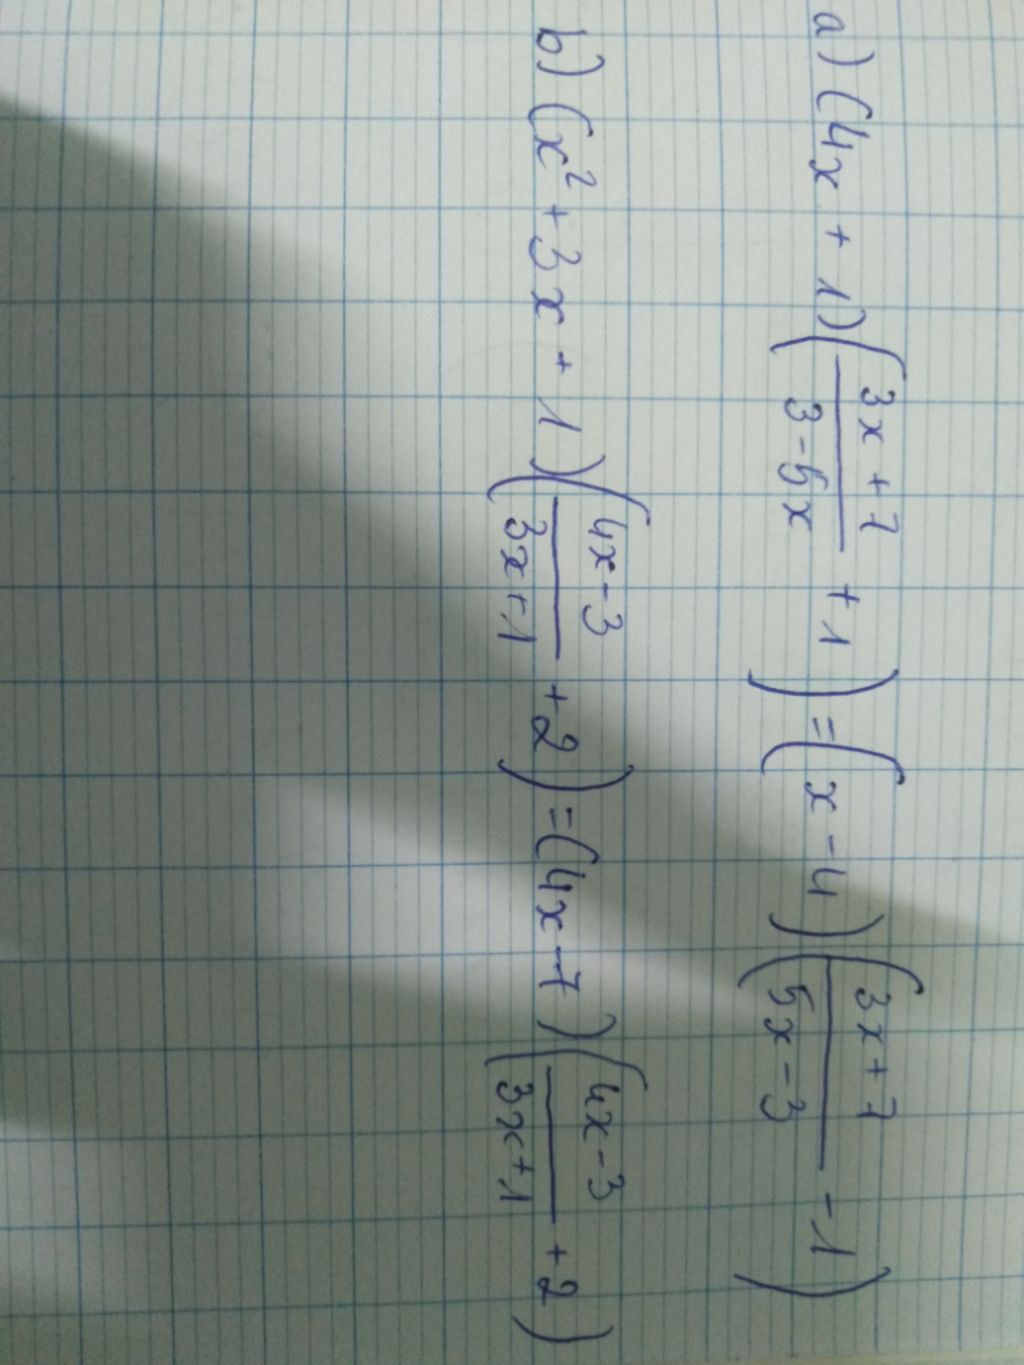 a) (4x + 1)((3x + 7)/(3 - 5x) + 1) = (x - 4)((3x + 7)/(5x - 3) - 1)
b) (x² + 3x + 1)((4x - 3)/(3x + 1) + 2) = (4x - 7)((4x - 3)/(3x + 1) + 2)